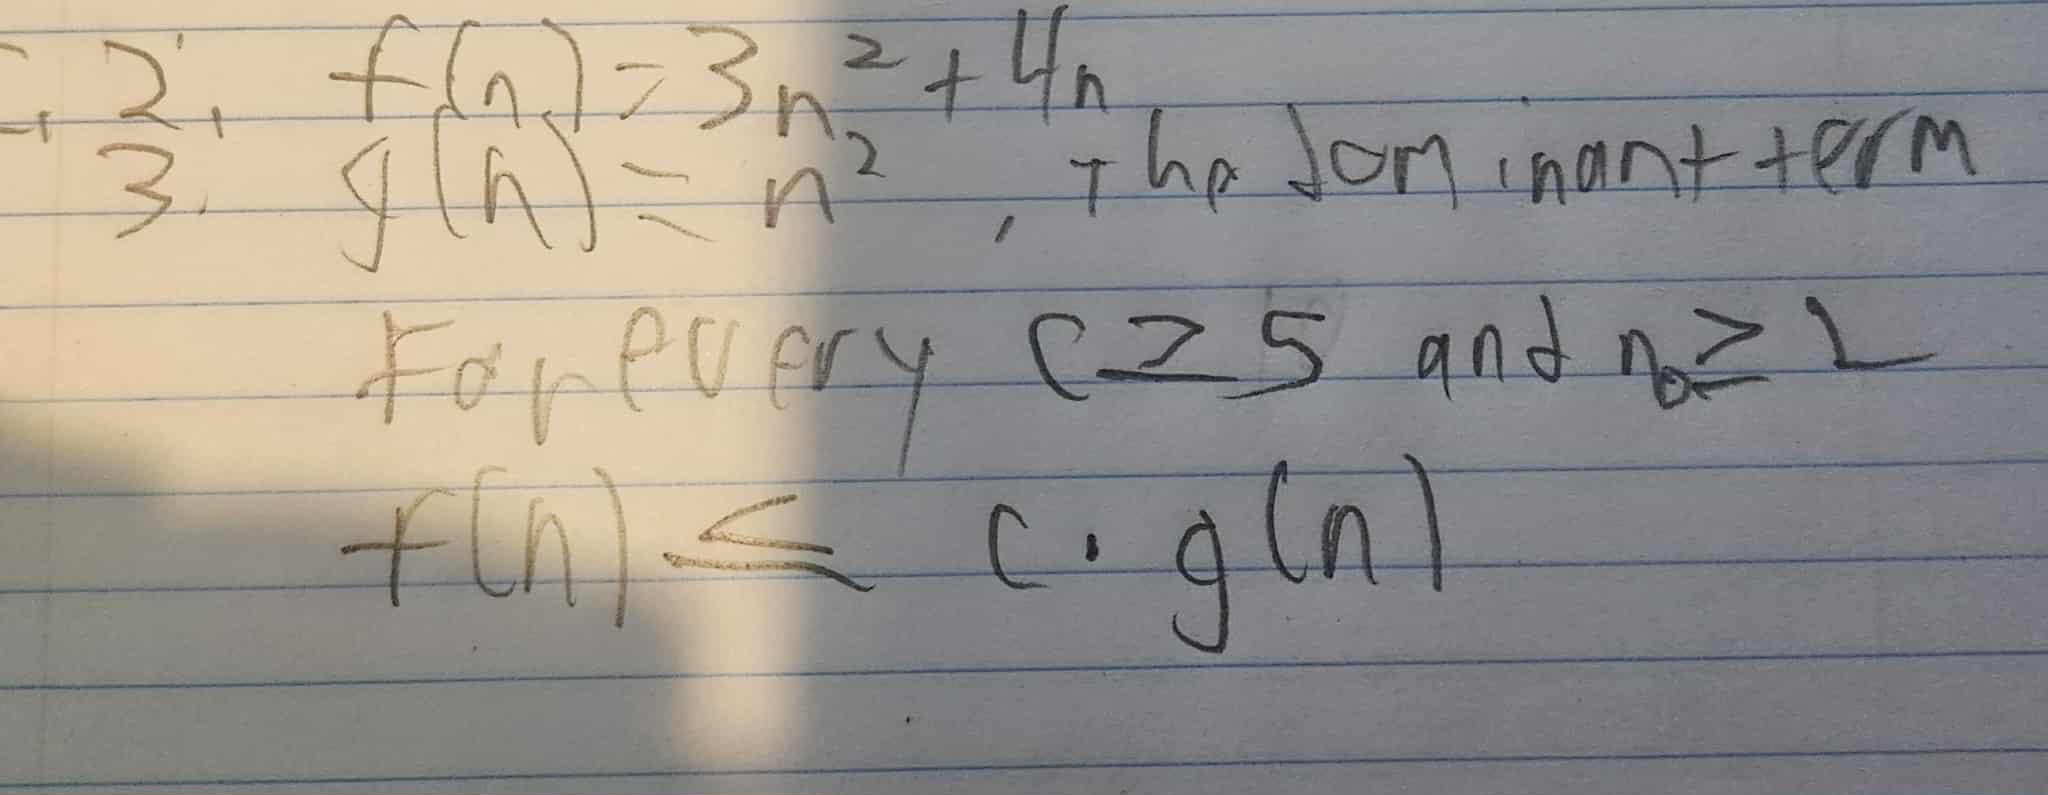 2. f(n) = 3n² + 4n
3. g(n) = n², the dominant term
For every c ≥ 5 and n₀ ≥ 2
f(n) ≤ c · g(n)